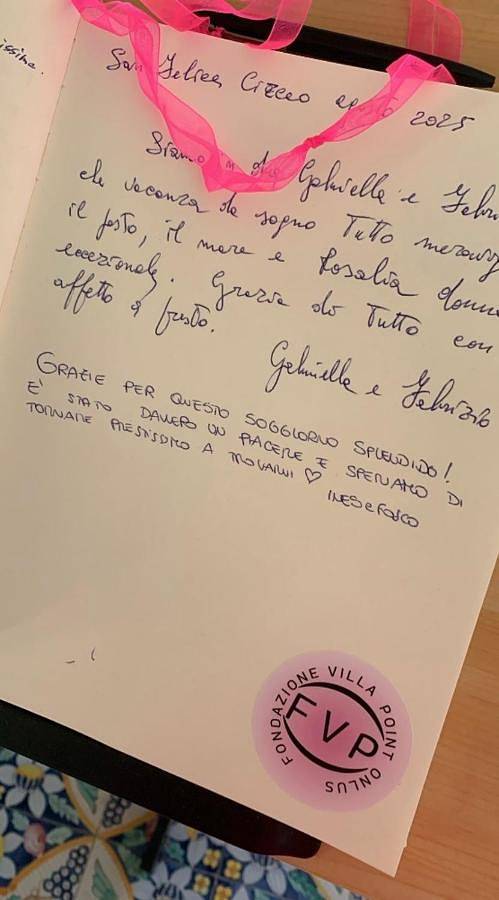 issime.
San Felice Circeo agosto 2025
Siamo in due Gabriella e Febri
che vacanza da sogno Tutto meravig
il posto, il mare e Rosalia donna
eccezionale. Grazie di Tutto con
affetto a presto.
Gabriella e Febrizio
GRAZIE PER QUESTO SOGGIORNO SPLENDIDO!
E' STATO DAVVERO UN PIACERE E SPERIAMO DI
TORNARE PRESTISSIMO A TROVARVI ♡
INES e FOSCO
FONDAZIONE VILLA POINT ONLUS
FVP